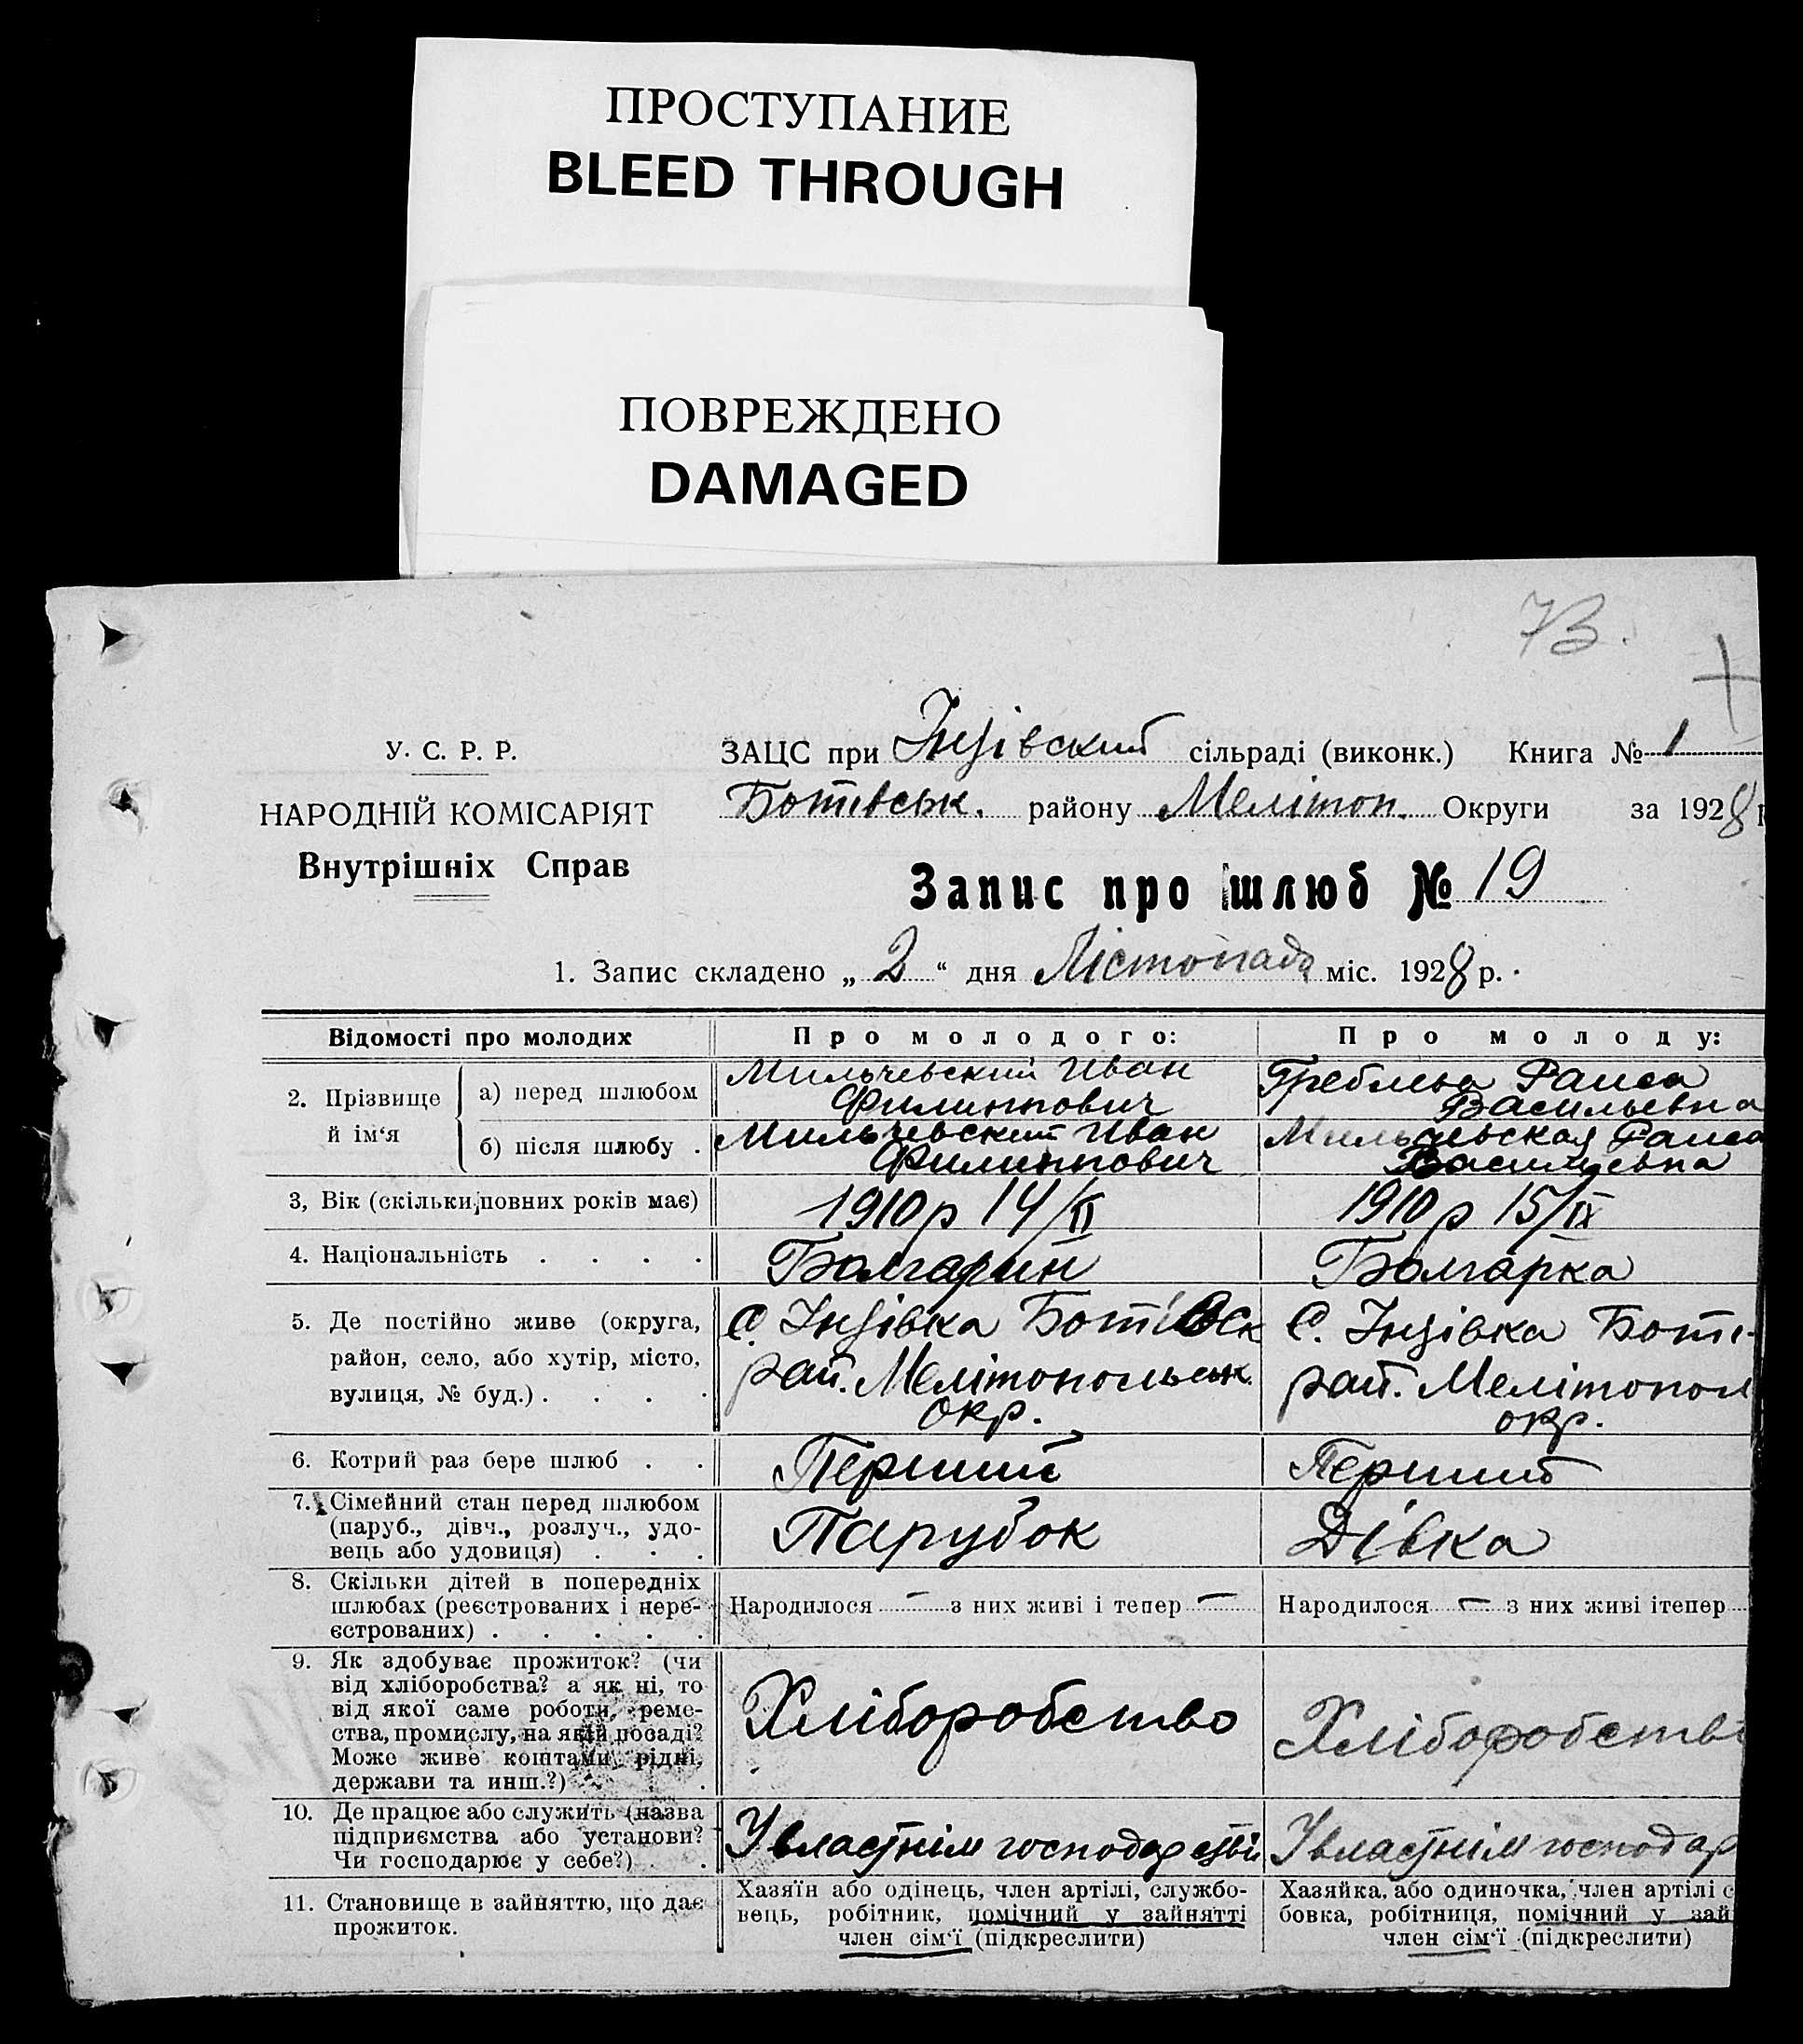 ПРОСТУПАНИЕ
BLEED THROUGH
ПОВРЕЖДЕНО
DAMAGED
73.
У. С. Р. Р.
НАРОДНІЙ КОМІСАРІЯТ
Внутрішніх Справ
ЗАЦС при Інзівский сільраді (виконк.) Книга № 1
Ботівськ. району Мелітоп. Округи за 1928 р
Запис про шлюб № 19
1. Запис складено „ 2 “ дня Лістопада міс. 1928 р.
Відомості про молодих
Про молодого:
Про молоду:
2. Прізвище й ім‘я
а) перед шлюбом
Мильчевский Иван
Филиппович
Раиса
Васильевна
б) після шлюбу .
Мильчевский Иван
Филиппович
Мильчевская Раиса
Васильевна
3, Вік (скільки повних років має)
1910 р 14/II
1910 р 15/IX
4. Національність . . . .
Болгарин
Болгарка
5. Де постійно живе (округа,
район, село, або хутір, місто,
вулиця, № буд.) . . . .
С. Інзівка Ботівск
рай. Мелітопольськ.
окр.
С. Інзівка Боті-
рай. Мелітопол
окр.
6. Котрий раз бере шлюб . .
Перший
Перший
7. Сімейний стан перед шлюбом
(паруб., дівч., розлуч., удо-
вець або удовиця) . . .
Парубок
Дівка
8. Скільки дітей в попередніх
шлюбах (реєстрованих і нере-
єстрованих) . . . . .
Народилося — з них живі і тепер —
Народилося — з них живі ітепер
9. Як здобуває прожиток? (чи
від хліборобства? а як ні, то
від якої саме роботи, реме-
ства, промислу, на якій посаді?
Може живе коштами рідні,
держави та инш.?) . . .
Хліборобство
Хліборобств
10. Де працює або служить (назва
підприємства або установи?
Чи господарює у себе?) . .
У властнім господарстві
У властнім господар
11. Становище в зайняттю, що дає
прожиток.
Хазяїн або одінець, член артілі, службо-
вець, робітник, помічний у зайнятті
член сім‘ї (підкреслити)
Хазяйка, або одиночка, член артілі с
бовка, робітниця, помічний у зай
член сім‘ї (підкреслити)